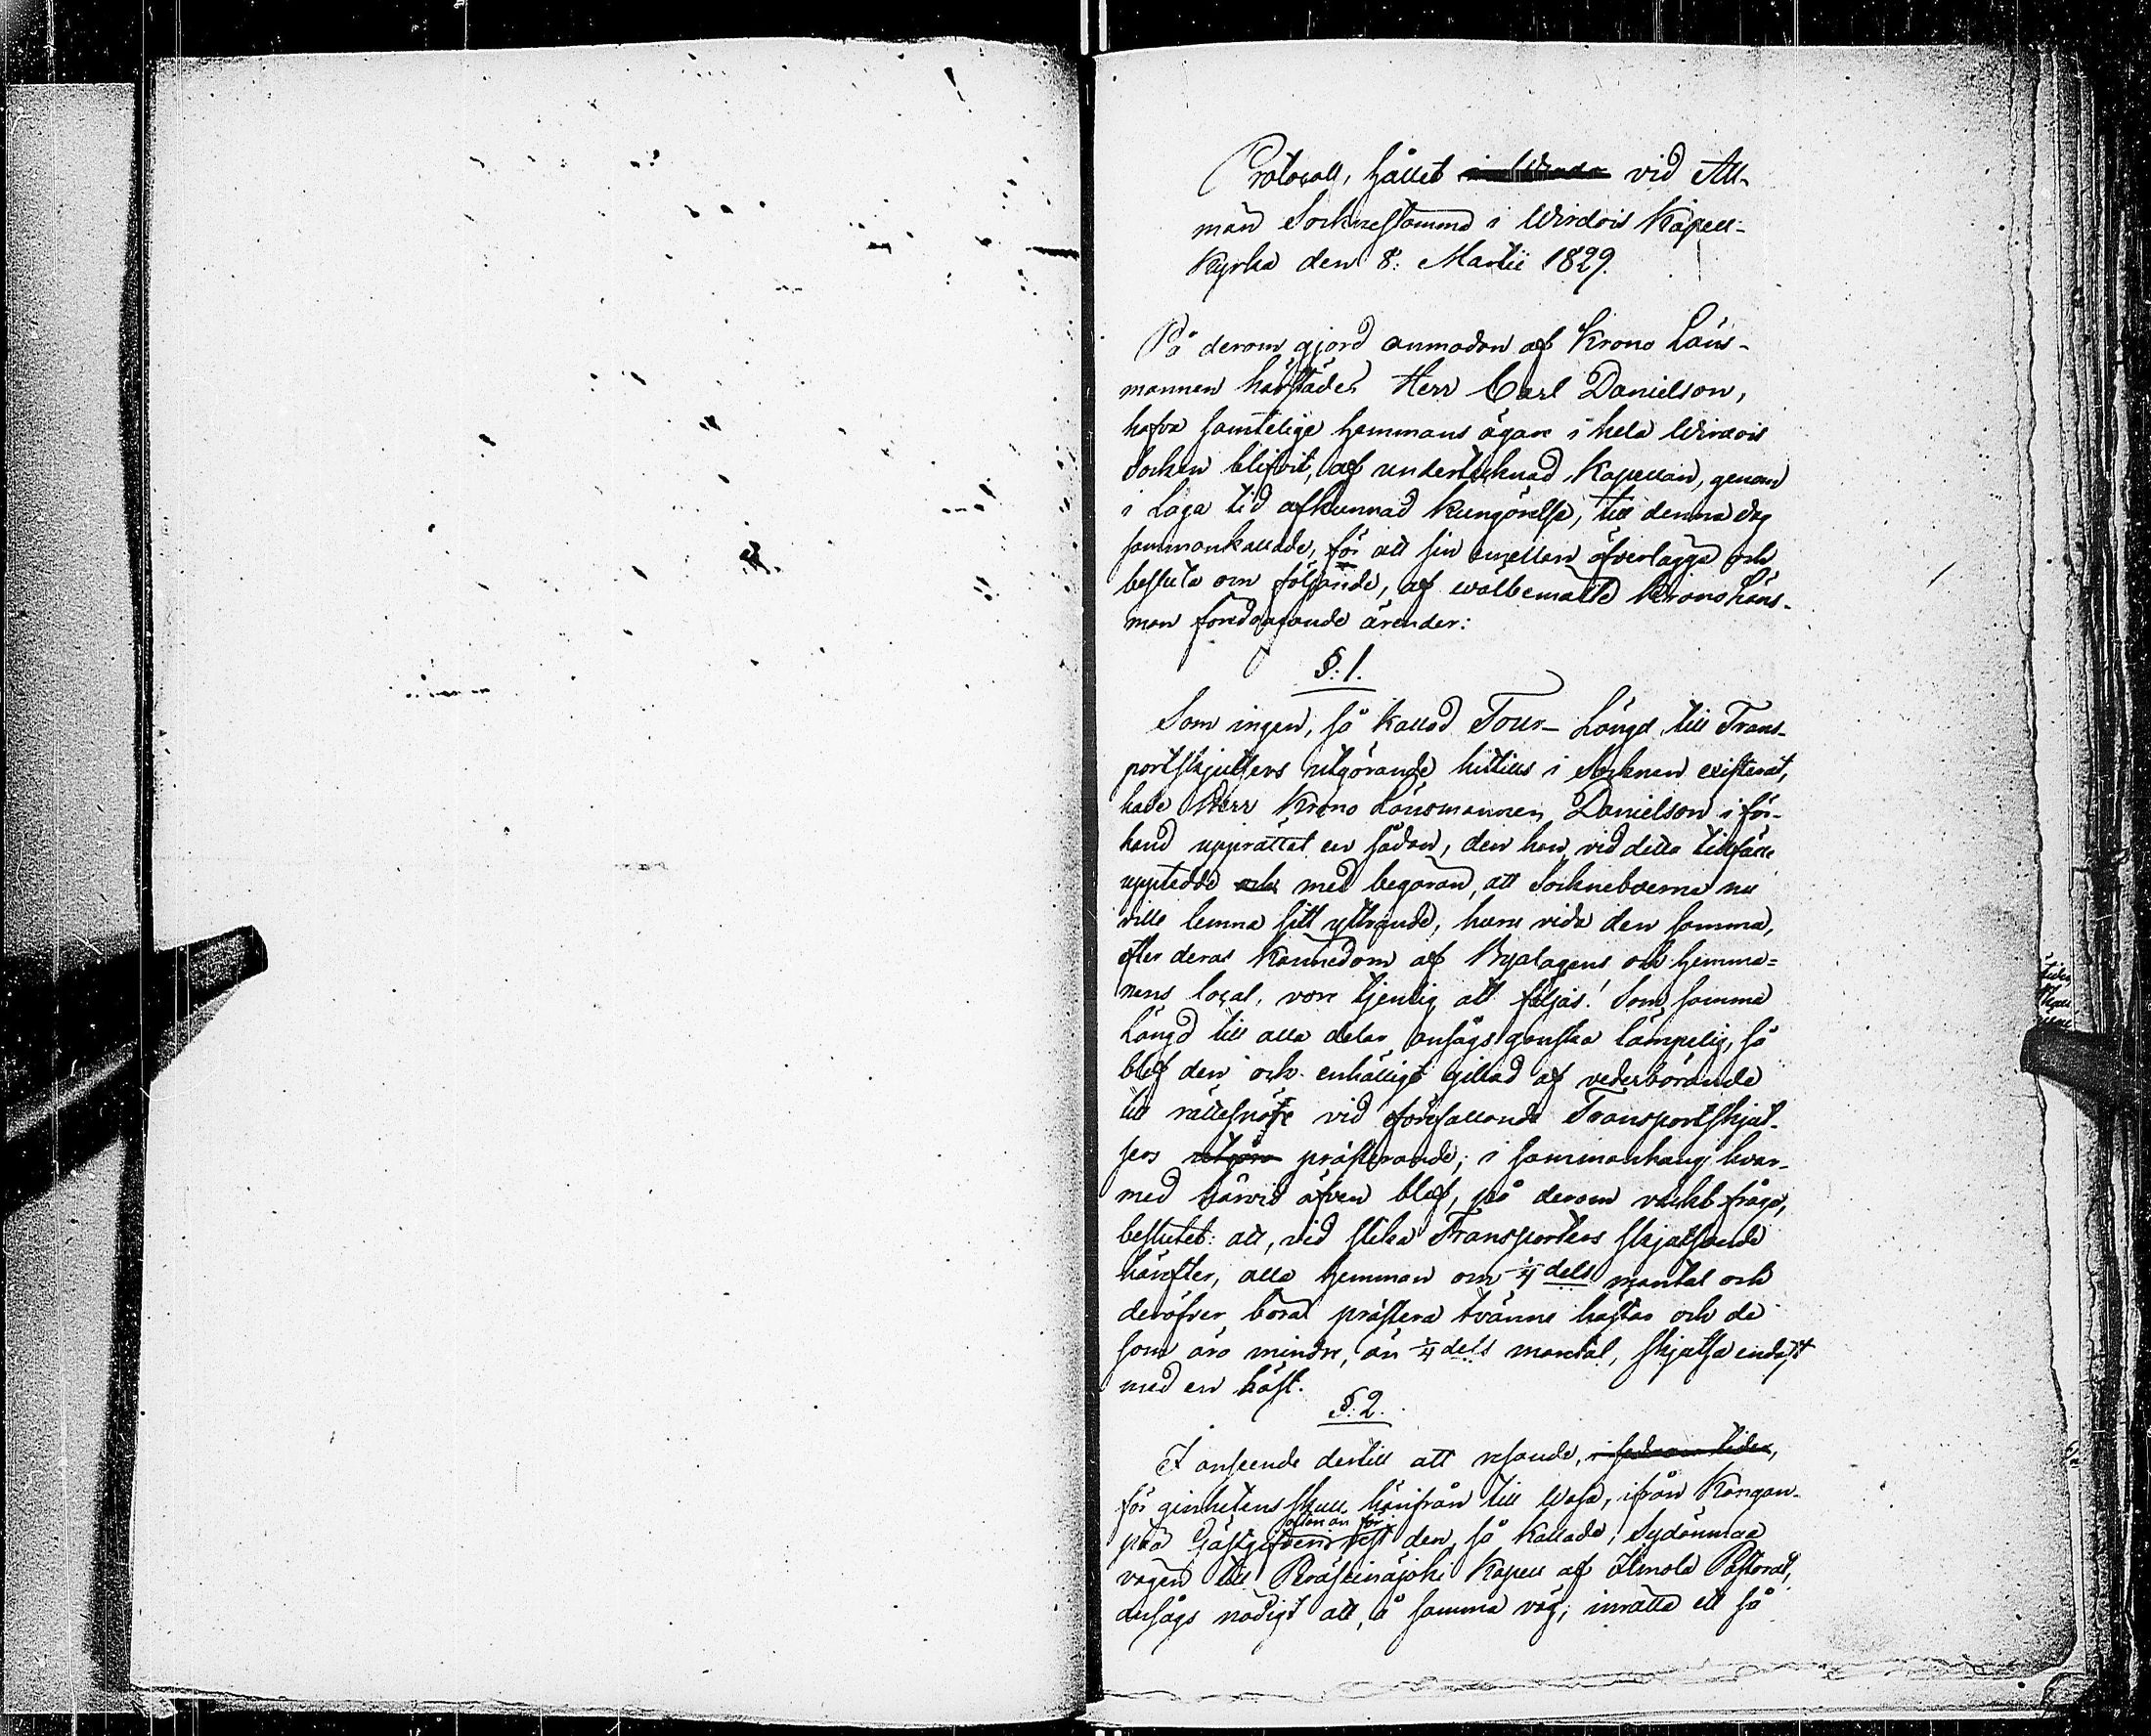 Protocoll, hållet vid All-
män Socknestämma i Wirdois Kapell-
Kyrka den 8: Martii 1829.
På derom gjord anmodan af Krono Läns-
mannen härstädes Herr Carl Danielson,
hafva samtelige hemmans ägare i hela Wirdois
Socken blifvit, af undertecknad Kapellan, genom
i Laga tid afkunnad kungörelse, till denna dag
sammankallade, för att sin emellan öfverlägga och
besluta om följande, af wälbemälte Krono Läns-
man föredragande ärender:
§. 1.
Som ingen, så kallad Tour-Längd till Trans-
portskjutsers utgörande hittils i Socknen existerat,
hade Herr Krono Länsmannen Danielson i för-
hand upprättat en sådan, den han vid detta tillfälle
upptedde och med begäran, att Sockneboerna nu
ville lemna sitt yttrande, huru vida den samma,
efter deras kännedom af Byalagens och hemma-
nens local, vore tjenlig att följas! Som samma
Längd till alla delar ansågs ganska lämpelig, så
blef den och enhälligt gillad af vederbörande
till rättesnöre vid förefallande Transportskjut-
sers utgöra præsterande; i sammanhang hvar-
med härvid äfven blef, på derom väckt fråga,
beslutet: att, vid slika Transporters skjutsande
hänefter, alla hemman om 1/4 dels mantal och
deröfver böra præstera tvänne hästar och de
som äro mindre, än 1/4 dels mantal, skjutsa endast
med en häst.
§. 2.
I anseende dertill att resande, i sednare tider,
för ginhetens skull, härifrån till Wasa, ifrån Kangan-
pää Gästgifveri den, så kallade, Sydänmaa
vägen till Peräseinäjoki Kapell af Ilmola Pastorat,
ansågs nödigt att, å samma väg, inrätta ett så